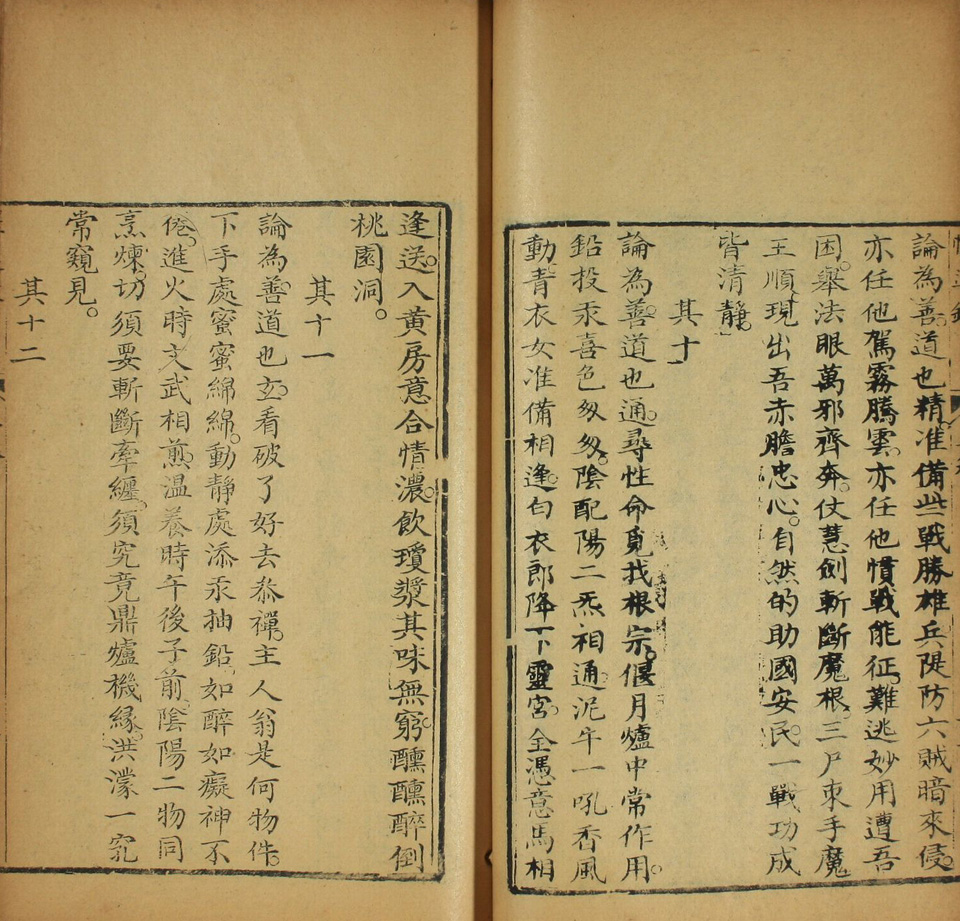 論為善。道也精。准備些戰勝雄兵隄防六賊暗來侵。
亦任他駕霧騰雲。亦任他慣戰能征。難逃妙用遭吾
困。舉法眼萬邪齊奔。仗慧劍斬斷魔根。三尸束手魔
王順。現出吾赤膽忠心。自然的助國安民。一戰功成
皆清靜。
其十
論為善。道也通。尋性命覓找根宗。偃月爐中常作用。
鉛投汞喜色匆匆。陰配陽二炁相通。泥牛一吼香風
動。青衣女准備相逢。白衣郎降下靈宮。全憑意馬相
逢送。入黄房意合情濃。飲瓊漿其味無窮。醺醺醉倒
桃園洞。
其十一
論為善。道也玄。看破了好去叅禪。主人翁是何物件。
下手處蜜蜜綿綿。動靜處添汞抽鉛。如醉如癡神不
倦。進火時文武相煎。温養時午後子前。陰陽二物同
烹煉。切須要斬斷牽纏。須究竟鼎爐機緣。洪濛一竅
常窺見。
其十二